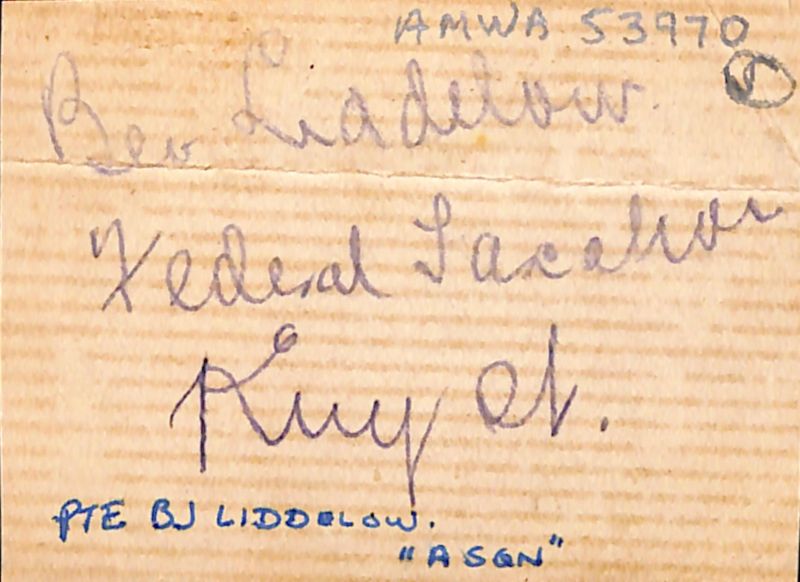 AMWA 53970
Bev Liddelow.
Federal Taxation
King St.
PTE BJ LIDDELOW.
"A SQN"